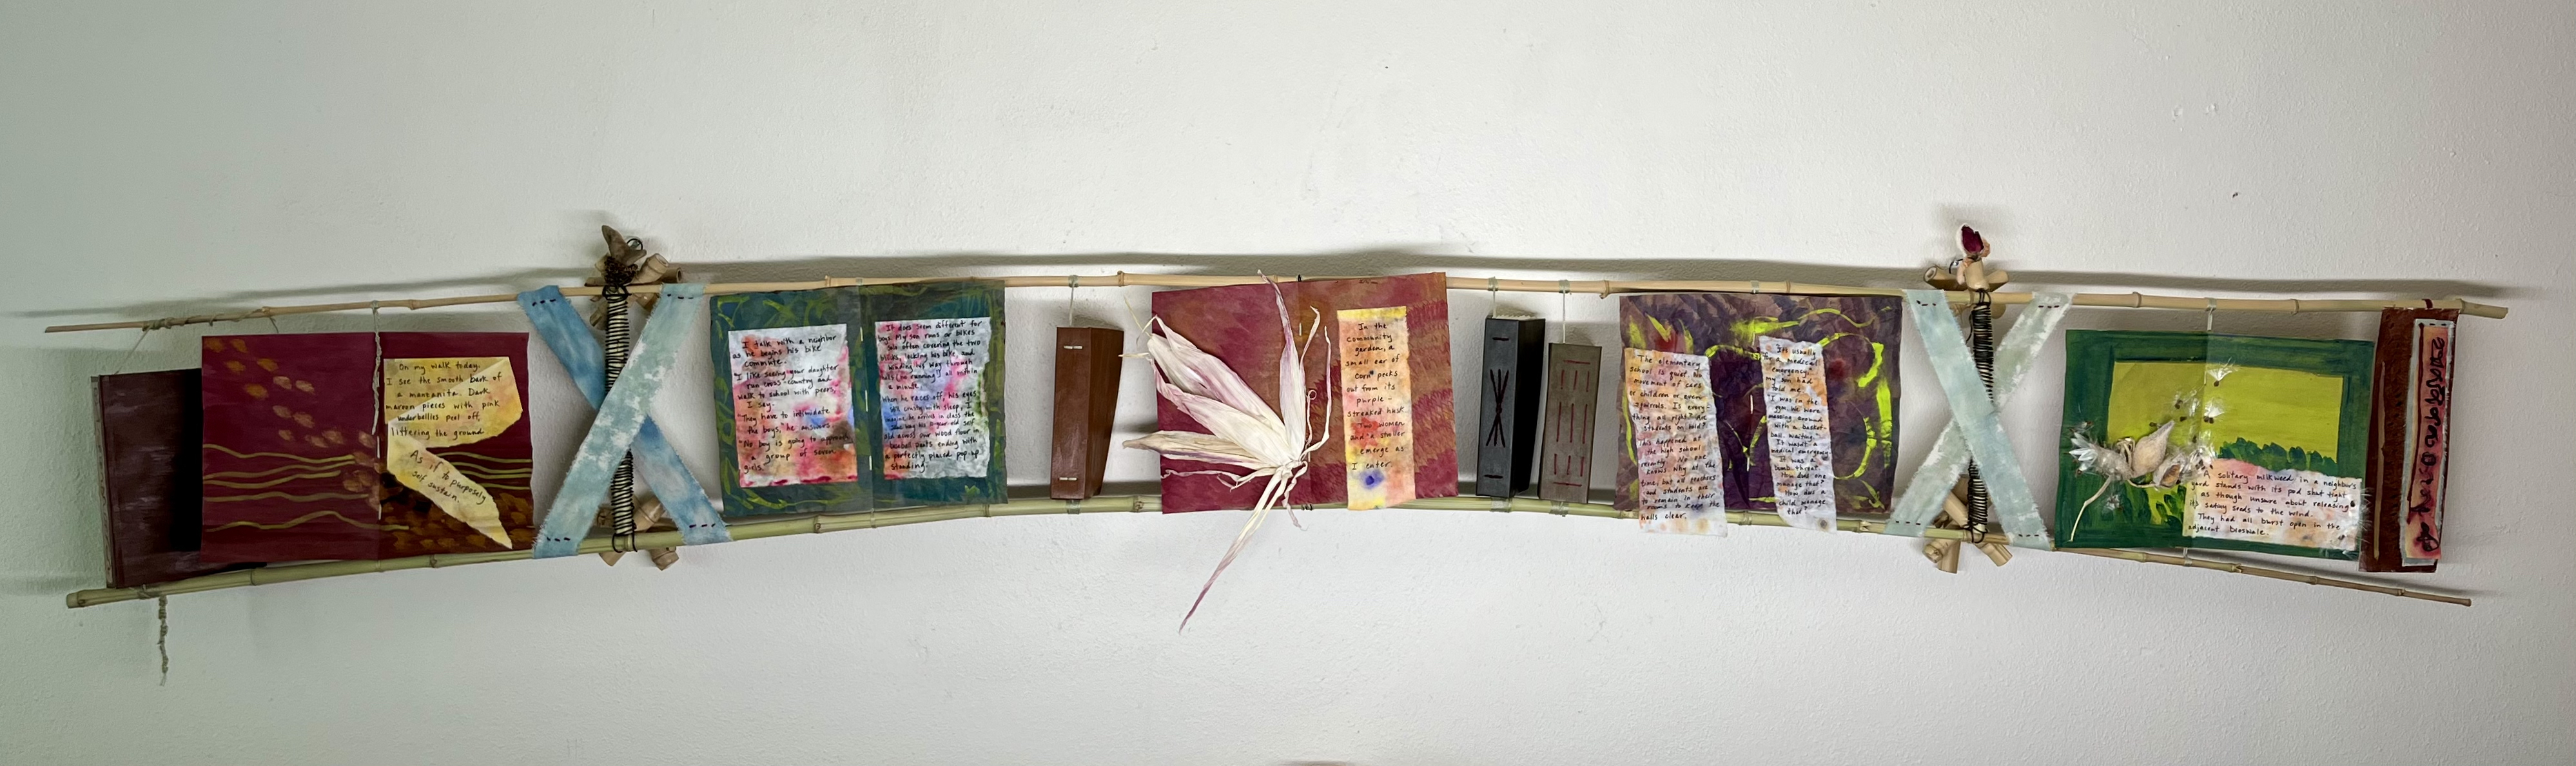 On my walk today.
I see the smooth bark of
a manzanita. Dark
maroon pieces with pink
underbellies peel off,
littering the ground.
As if to purposely
self sustain.
I talk with a neighbor
as he begins his bike
commute.
I like seeing your daughter
run cross-country and
walk to school with peers
I say.
"They have to intimidate
the boys," he answers.
"No boy is going to approach
a group of seven
girls."
It does seem different for
boys. My son runs or bikes
solo often covering the two
miles, locking his bike and
the running)
a perfectly placed pop-up
standing.
In the
community
garden, a
small ear of
corn peeks
out from its
purple-
streaked husk.
Two women
and a stroller
emerge as
I enter
The elementary
school is quiet. No
movement of cars
or children or even
squirrels. Is every-
thing all right? Are
students on hold?
This happened at
the high school
recently. No one
knows why at the
time, but all teachers
and students are
to remain in their
rooms to keep the
halls clear.
It's usually
a medical
emergency,
my son had
told me.
I was in the
gym. We were
messing around
with a basket-
ball, waiting.
It wasn't a
medical emergency.
It was a
bomb threat.
How does one
manage that?
How does a
child manage
that?
A solitary milkweed in a neighbor's
yard stands with its pod shut tight
as though unsure about releasing
its satiny seeds to the wind.
They had all burst open in the
adjacent bioswale.